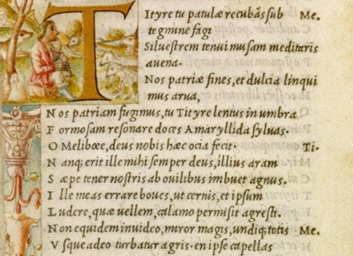 Tityre tu patulæ recubãs sub Me.
tegmine fagi
Siluestrem tenui musam meditaris
auena.
Nos patriæ fines, et dulcia linqui
mus arua,
Nos patriam fugimus, tu Tityre lentus in umbra
Formosam resonare doces Amaryllida syluas.
O Melibœe, deus nobis hæc ocia fecit. Ti.
Nanq; erit ille mihi semper deus, illius aram
Sæpe tener nostris ab ouilibus imbuet agnus.
Ille meas errare boues, ut cernis, et ipsum
Ludere, quæ uellem, calamo permisit agresti.
Non equidem inuideo, miror magis, undiq; totis Me.
Vsque adeo turbatur agris. en ipse capellas